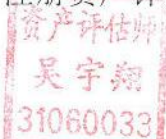 资产评估师
吴宇翔
31060033